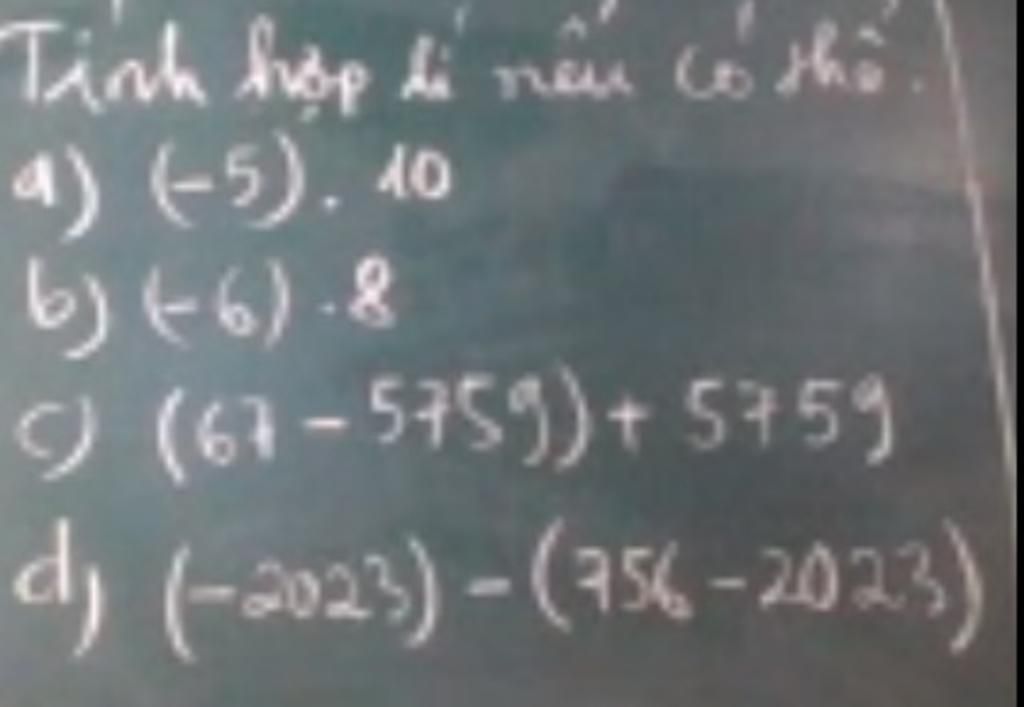 Tính hợp lí nếu có thể.
a) (-5). 10
b) (-6) . 8
c) (67 - 5759) + 5759
d) (-2023) - (756 - 2023)